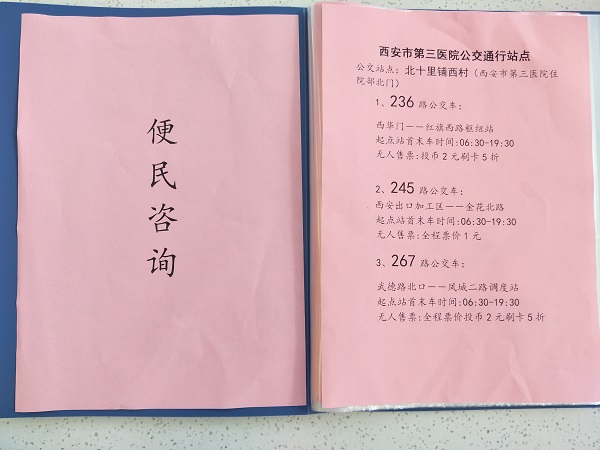 便民咨询
西安市第三医院公交通行站点
公交站点：北十里铺西村（西安市第三医院住
院部北门）
1、236 路公交车：
西华门——红旗西路枢纽站
起点站首末车时间:06:30-19:30
无人售票:投币2元刷卡5折
2、245 路公交车：
西安出口加工区——金花北路
起点站首末车时间:06:30-19:30
无人售票:全程票价1元
3、267 路公交车：
武德路北口——凤城二路调度站
起点站首末车时间:06:30-19:30
无人售票:全程票价投币2元刷卡5折